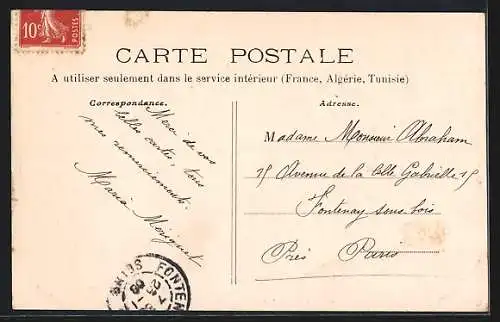 10c
POSTES
CARTE POSTALE
A utiliser seulement dans le service intérieur (France, Algérie, Tunisie)
Correspondance.
Merci de vos
belles cartes, tous
mes remerciements.
Maria
Adresse.
Madame Monsieur Abraham
25 Avenue de la belle Gabrielle 25
Fontenay sous bois
Près Paris
FONTEN
SEINE